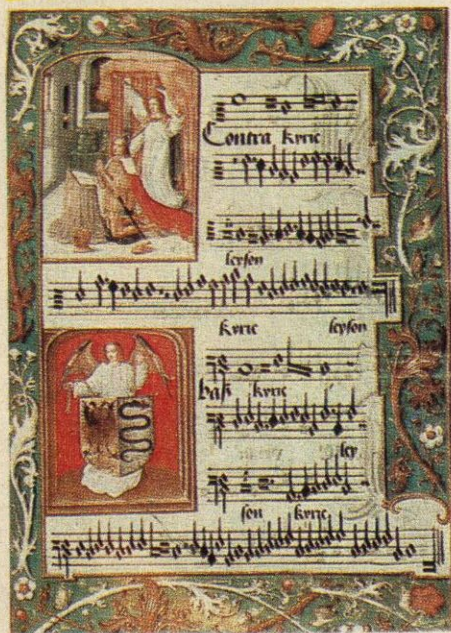 Contra kyrie
leyson
kyrie leyson
baß kyrie
ley
son kyrie